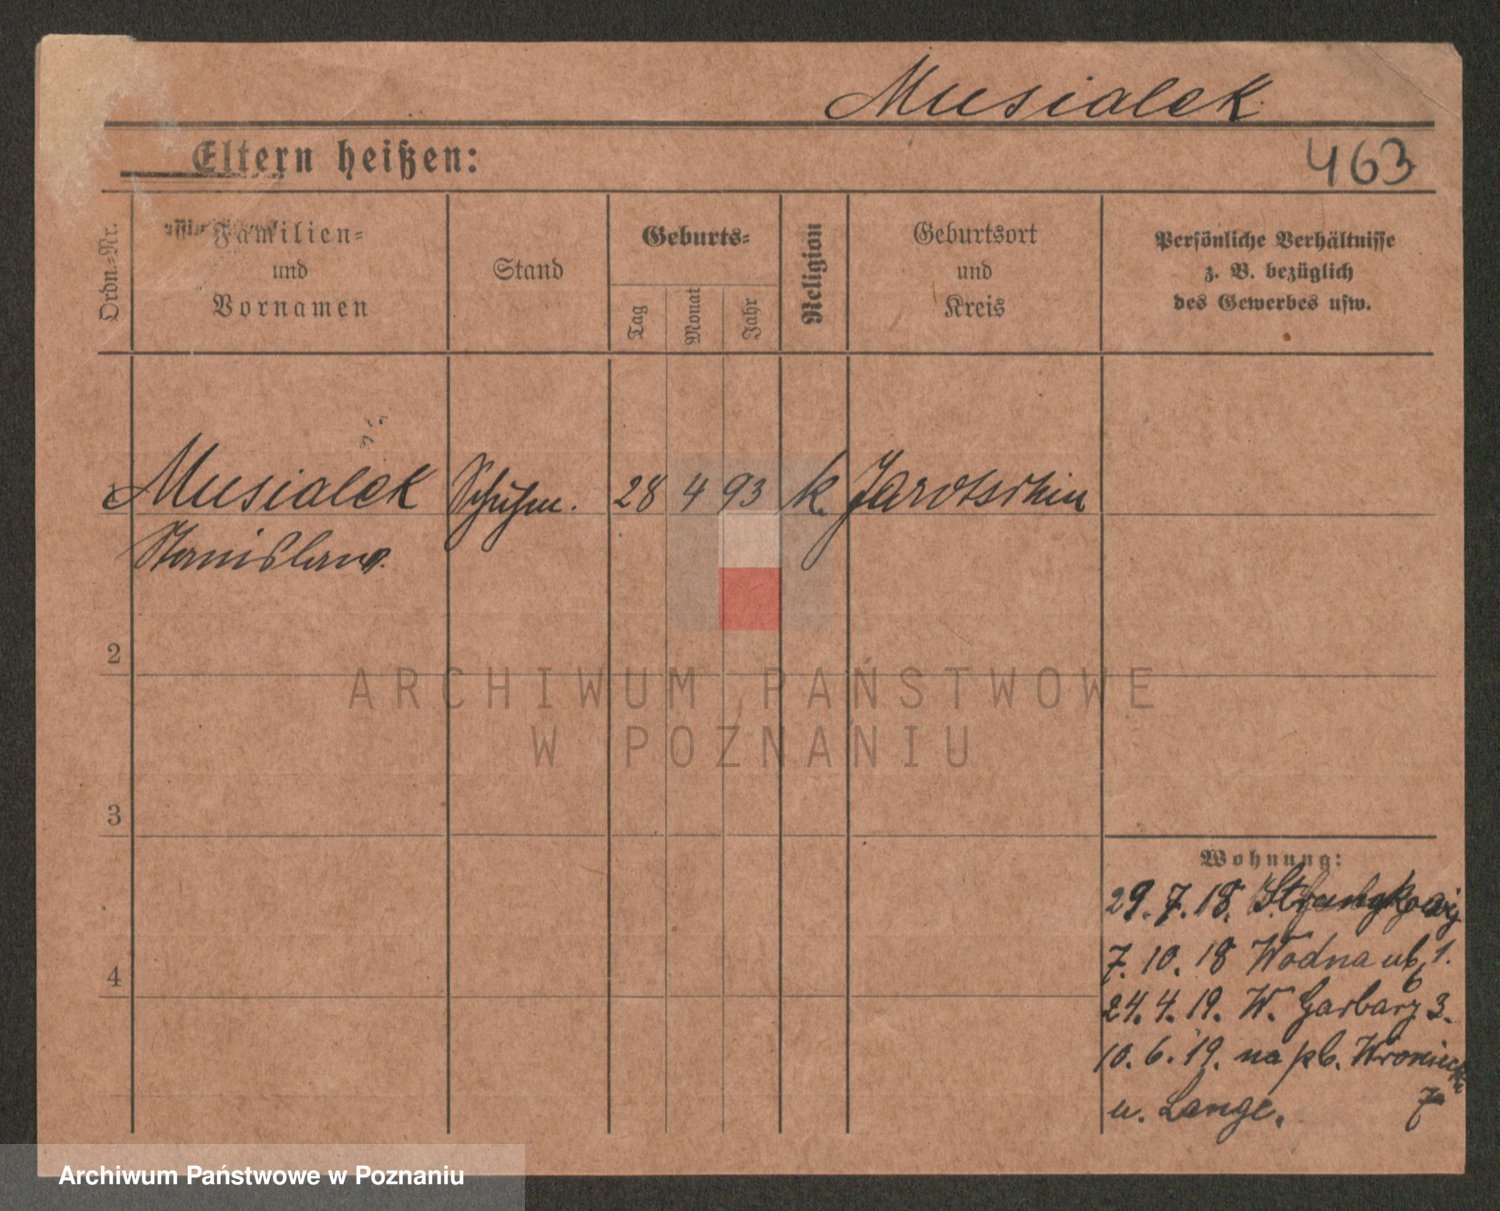 Musialek
Eltern heißen:
463
Ordn.-Nr.
Familien-
und
Vornamen
Stand
Geburts-
Tag
Monat
Jahr
Religion
Geburtsort
und
Kreis
Persönliche Verhältnisse
z. B. bezüglich
des Gewerbes usw.
1 Musialek Schuhm. 28 4 93 k. Jarotschin
Stanislaus.
2
ARCHIWUM PAŃSTWOWE
W POZNANIU
3
Wohnung:
29. 7. 18.
4
7. 10. 18 Wodna 1.
24. 4. 19. W. Garbary 3.
10. 6. 19. na pl. Wroniecki
u. Lange. 7
Archiwum Państwowe w Poznaniu